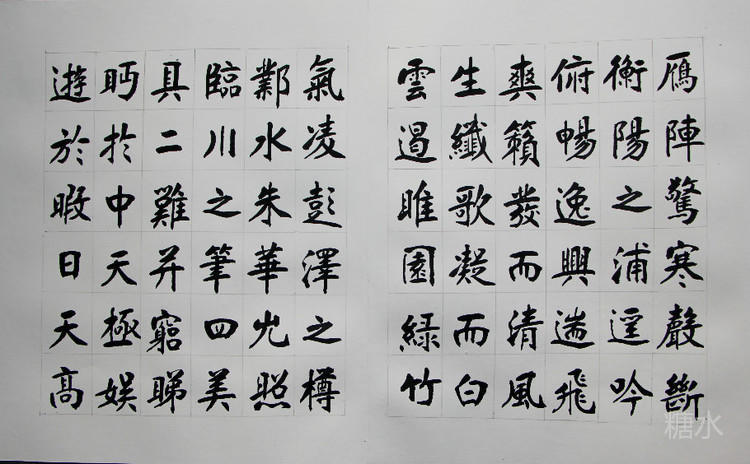 鴈陣驚寒聲斷
衡陽之浦遥吟
俯暢逸興遄飛
爽籟發而清風
生纖歌凝而白
雲遏睢園緑竹
氣凌彭澤之樽
鄴水朱華光照
臨川之筆四美
具二難并窮睇
眄於中天極娱
遊於暇日天高
糖水